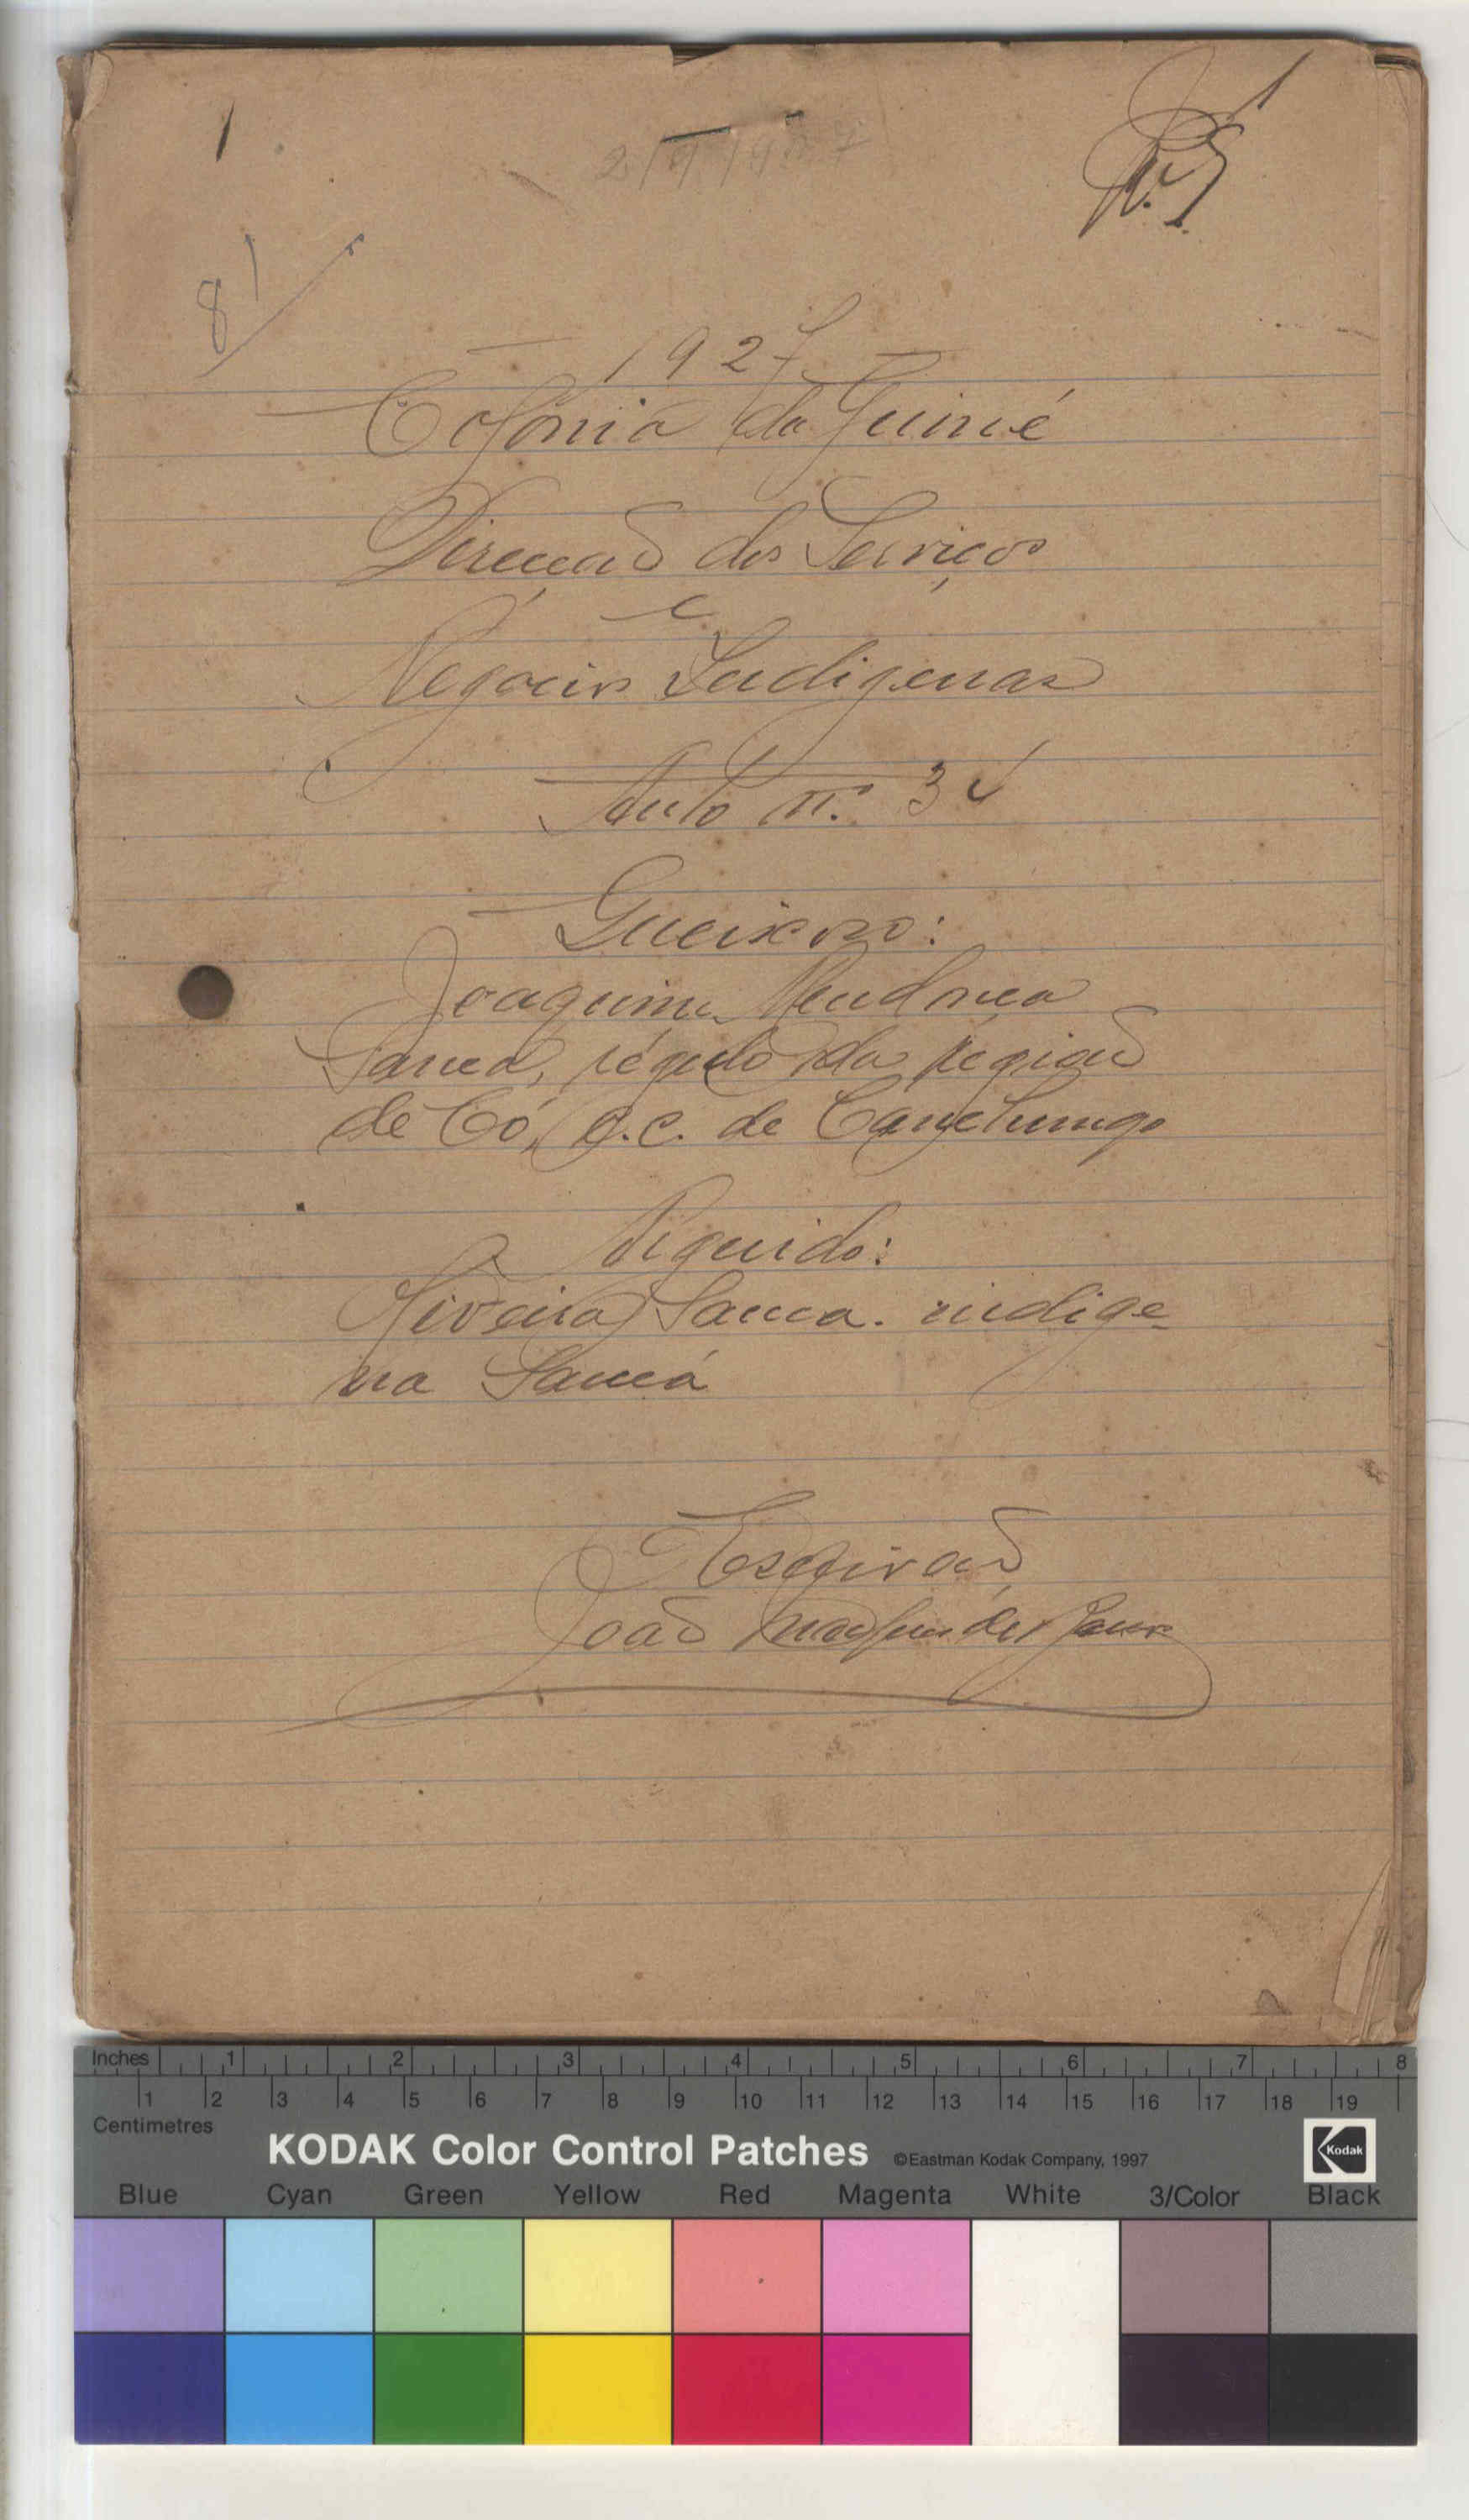 1
1
8/
1927
Colónia da Guiné
Direcção dos Serviços
e
Negocios Indigenas
Auto n.º 34
Queixoso:
Joaquim Mendonça
Sancá, régulo da região
de Có, C.C. de Canchungo
Arguido:
Oliveira Sanca. indige-
na Sancá
Escrivão
João
Inches 1 2 3 4 5 6 7 8
1 2 3 4 5 6 7 8 9 10 11 12 13 14 15 16 17 18 19
Centimetres
KODAK Color Control Patches ©Eastman Kodak Company, 1997 Kodak
Blue Cyan Green Yellow Red Magenta White 3/Color Black